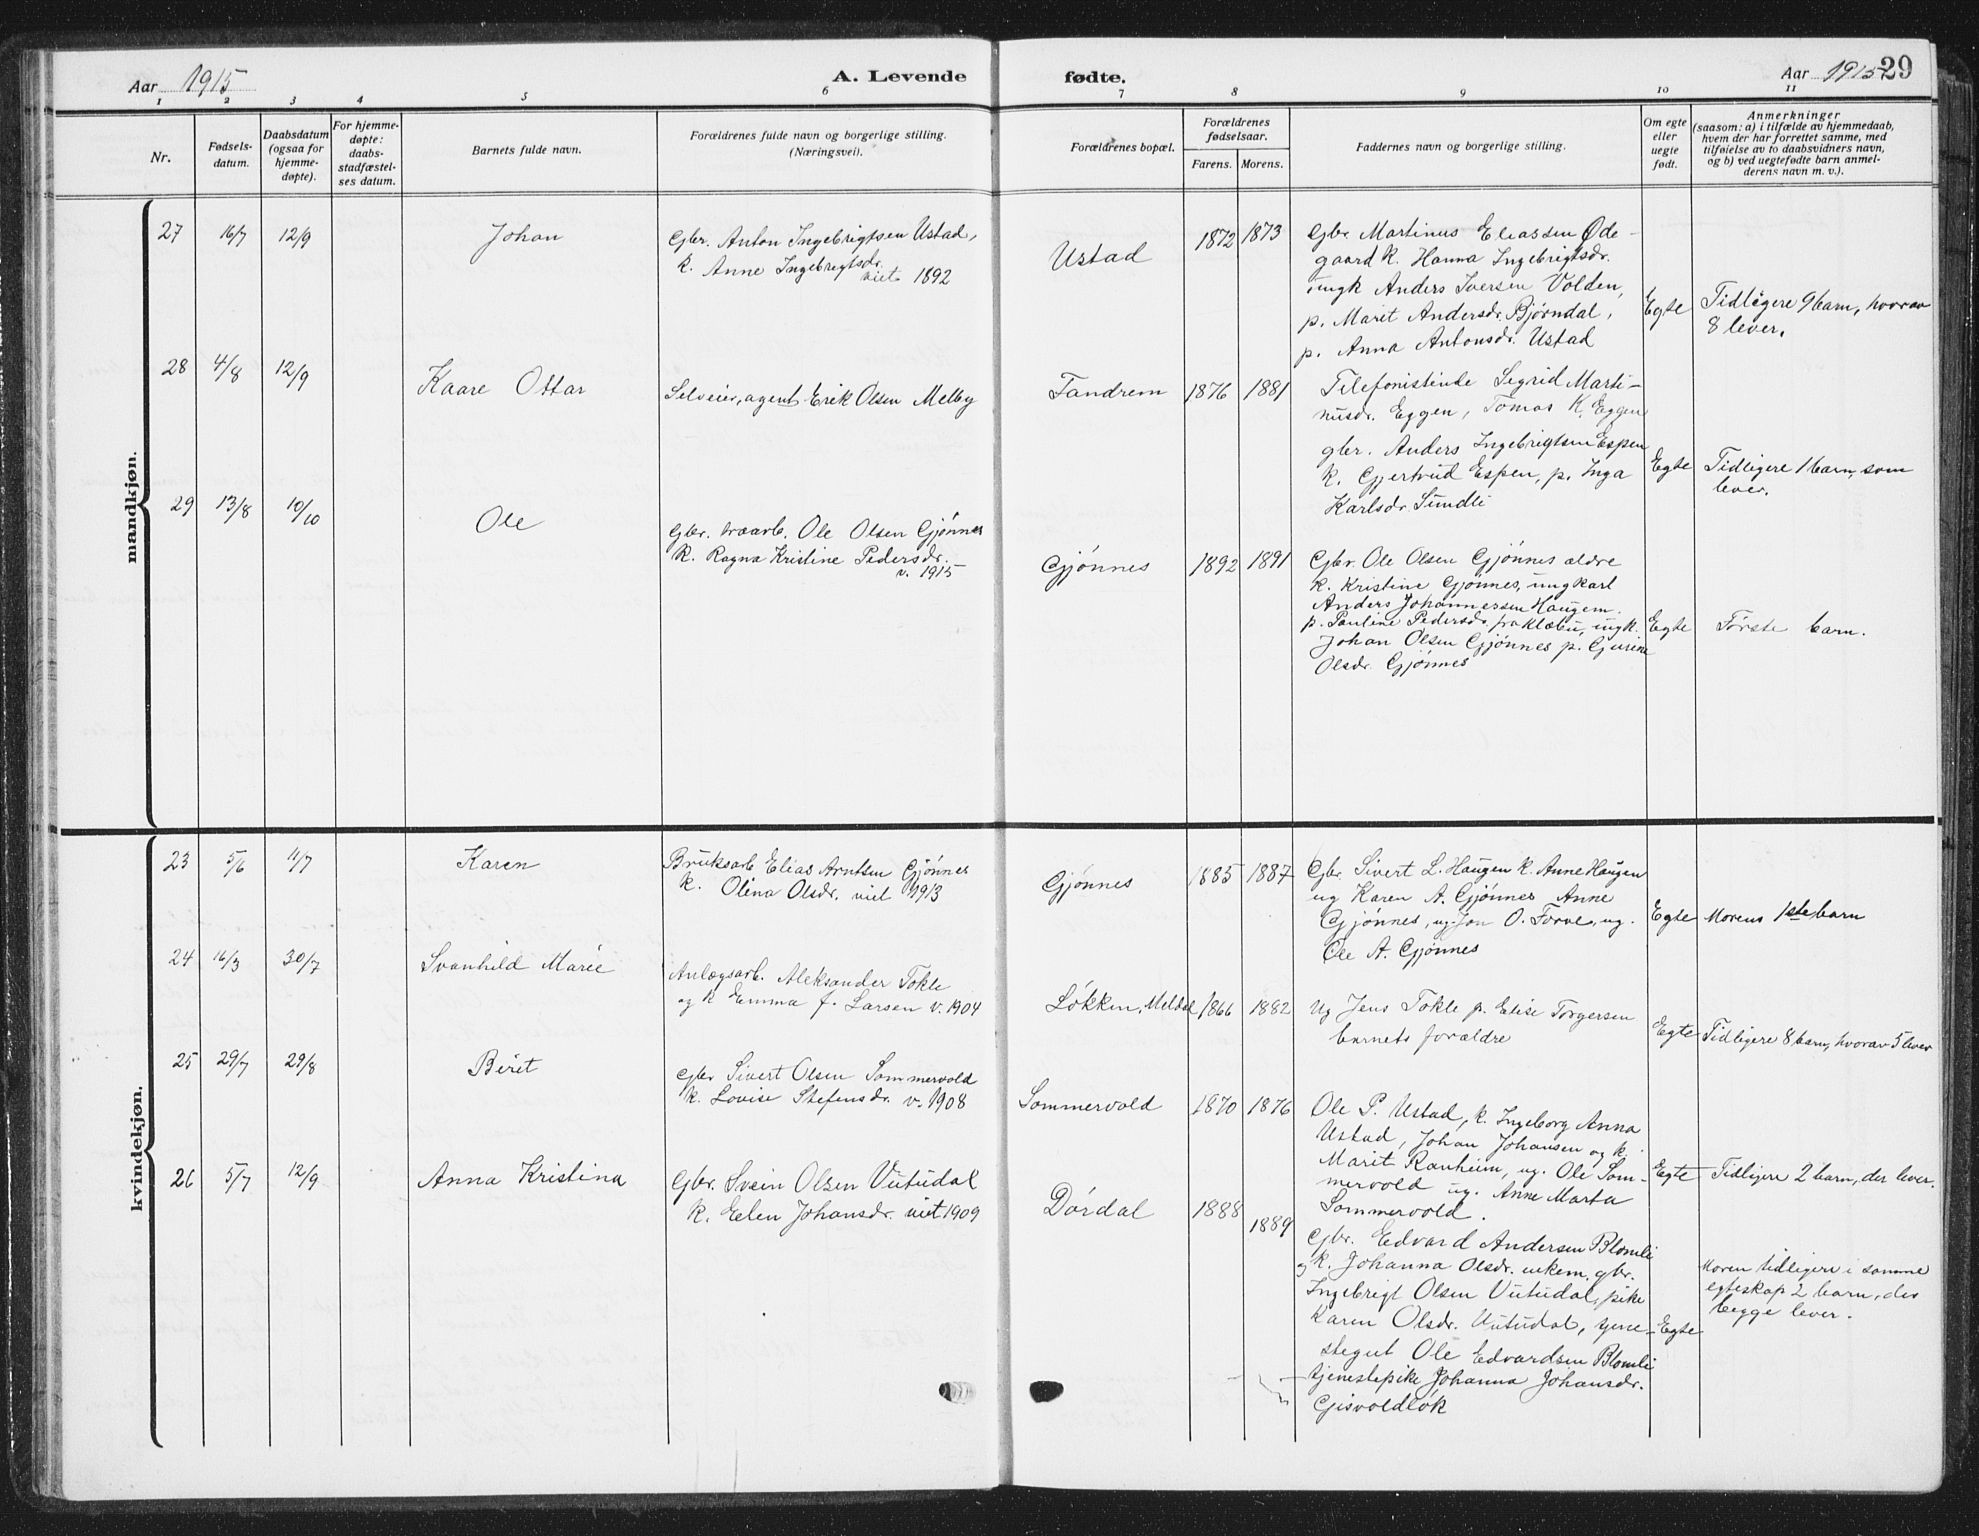 Aar 1915
A. Levende
fødte.
Aar 1915
29
1 2 3 4 5 6 7 8 9 10 11
Nr.
Fødsels-
datum.
Daabsdatum
(ogsaa for
hjemme-
døpte).
For hjemme-
døpte:
daabs-
stadfæstel-
ses datum.
Barnets fulde navn.
Forældrenes fulde navn og borgerlige stilling.
(Næringsvei).
Forældrenes bopæl.
Forældrenes
fødselsaar.
Farens. Morens.
Faddernes navn og borgerlige stilling.
Om egte
eller
uegte
født.
Anmerkninger
(saasom: a) i tilfælde av hjemmedaab,
hvem der har forrettet samme, med
tilføielse av to daabsvidners navn,
og b) ved uegtefødte barn anmel-
derens navn m. v.).
mandkjøn.
27 16/7 12/9 Johan
Gbr. Anton Ingebrigtsen Ustad,
k. Anne Ingebrigtsdr.
viet 1892
Ustad 1872 1873
Gbr Martinus Eliassen Øde-
gaard k. Hanna Ingebrigtsdr.
ungk Anders Iversen Volden,
p. Marit Andersdr. Bjørndal,
p. Anna Antonsdr. Ustad
Egte
Tidligere 9 barn, hvorav
8 lever.
28 4/8 12/9 Kaare Ottar
Selveier, agent Erik Olsen Melby
Tandrem 1876 1881
Telefonistinde Sigrid Marti-
nusdr. Eggen, Tomas K. Eggen
gbr. Anders Ingebrigtsen Espen
k. Gjertrud Espen, p. Inga
Karlsdr. Sundli
Egte
Tidligere 1 barn, som
lever.
29 13/8 10/10 Ole
Gbr. træarb. Ole Olsen Gjønnes
k. Ragna Kristine Pedersdr.
v. 1915
Gjønnes 1892 1891
Gbr. Ole Olsen Gjønnes ældre
k. Kristine Gjønnes, ungkarl
Anders Johannessen Haugem.
p. Pauline Pedersdr. fra Klæbu, ungk.
Johan Olsen Gjønnes p. Gjurine
Olsdr. Gjønnes
Egte
Første barn.
kvindekjøn.
23 5/6 11/7 Karen
Bruksarb Elias Arntsen Gjønnes
k. Olina Olsdr. viet 1913
Gjønnes 1885 1887
Gbr. Sivert L. Haugen k. Anne Haugen
ug Karen A. Gjønnes Anne
Gjønnes, ug. Jon O. Forve, ug.
Ole A. Gjønnes
Egte
Morens 1ste barn
24 16/3 30/7 Svanhild Marie
Anlægsarb. Aleksander Tokle
og k Emma f. Larsen v. 1904
Løkken, Meldal 1866 1882
Ug Jens Tokle p. Elise Torgersen
barnets forældre
Egte
Tidligere 8 barn, hvorav 5 lever
25 29/7 29/8 Berit
Gbr Sivert Olsen Sommervold
k. Lovise Stefensdr. v. 1908
Sommervold 1870 1876
Ole P. Ustad, k. Ingeborg Anna
Ustad, Johan Johansen og k.
Marit Ranheim, ug. Ole Som-
mervold ug. Anne Marta
Sommervold.
Egte
Tidligere 2 barn, der lever.
26 5/7 12/9 Anna Kristina
Gbr. Svein Olsen Vutudal
k. Elen Johansdr. viet 1909
Dørdal 1888 1889
Gbr. Edvard Andersen Blomli
og k. Johanna Olsdr. enkem. gbr.
Ingebrigt Olsen Vutudal, pike
Karen Olsdr. Vutudal, tjene-
stegut Ole Edvardsen Blomli
tjenestepike Johanna Johansdr.
Gjisvoldløk
Egte
Moren tidligere i samme
egteskap 2 barn, der
begge lever.